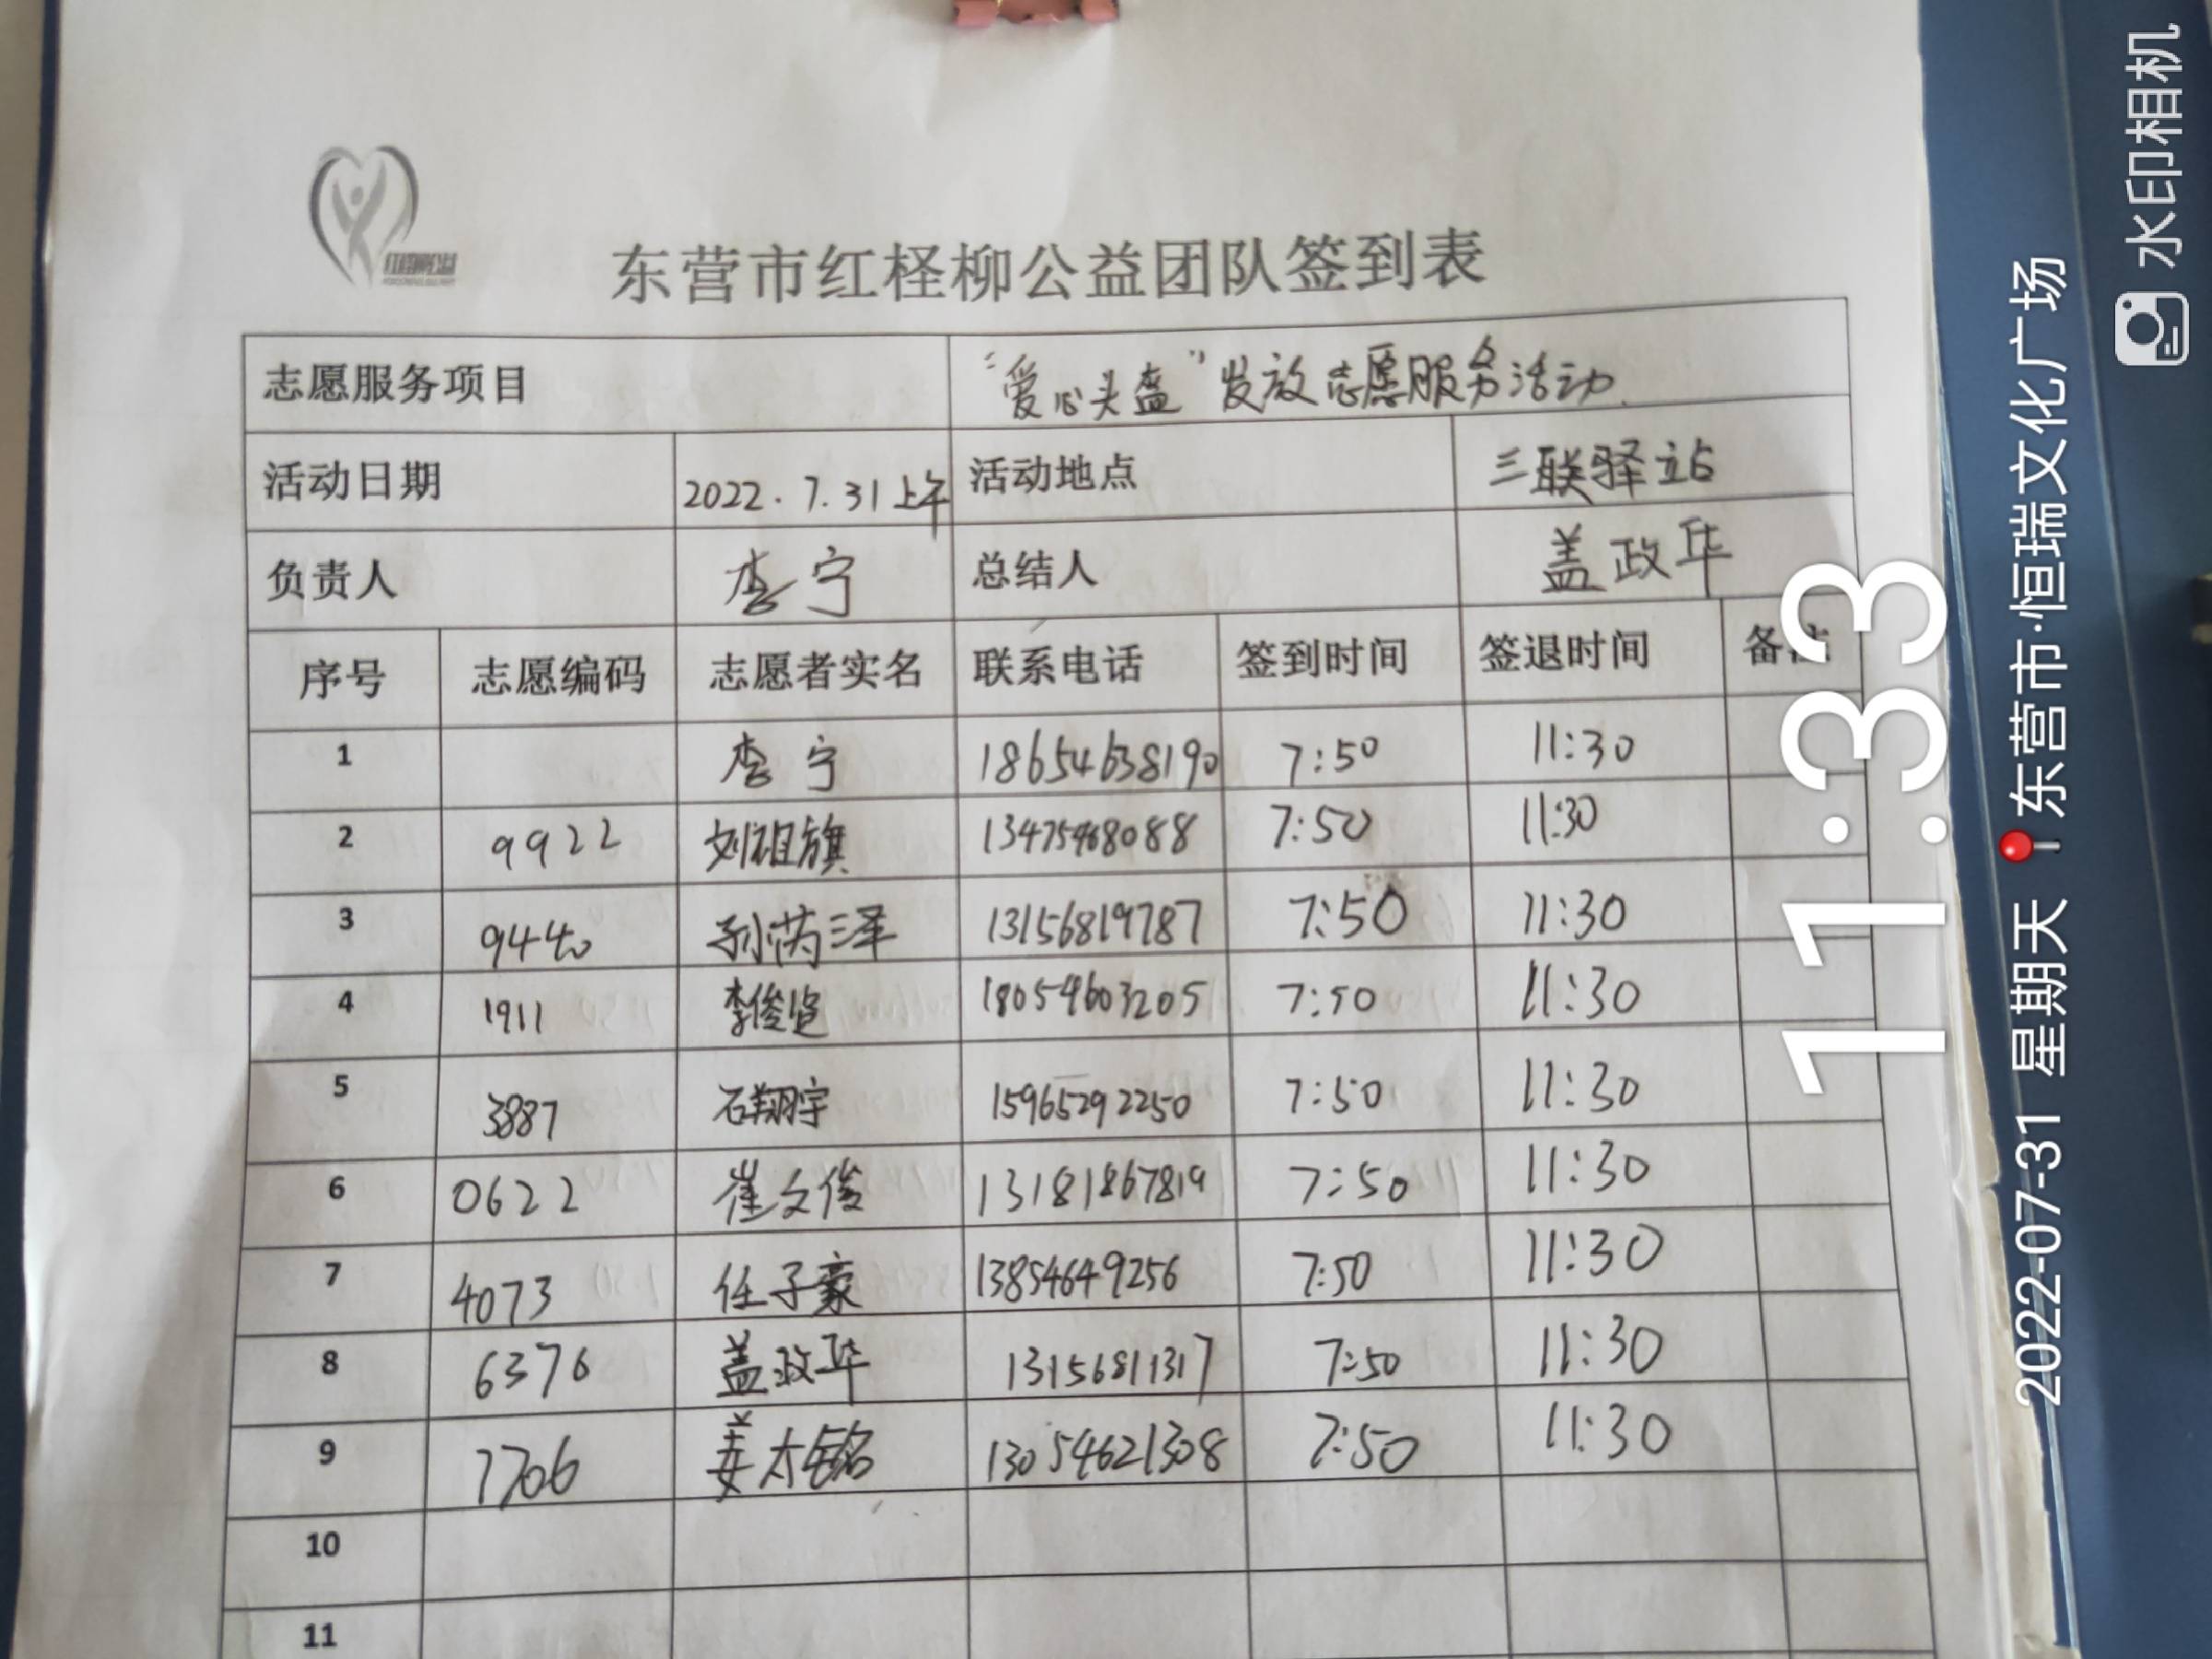 红柽柳公益
东营市红柽柳公益团队签到表
志愿服务项目 “爱心头盔”发放志愿服务活动.
活动日期 2022.7.31上午 活动地点 三联驿站
负责人 李宁 总结人 盖政华
序号 志愿编码 志愿者实名 联系电话 签到时间 签退时间 备注
1 李宁 18654638190 7:50 11:30
2 9922 刘祖旗 13475468088 7:50 11:30
3 9440 孙芮泽 13156819787 7:50 11:30
4 1911 18054603205 7:50 11:30
5 3887 石翔宇 15965292250 7:50 11:30
6 0622 崔文俊 13181867819 7:50 11:30
7 4073 任子豪 13854649256 7:50 11:30
8 6376 盖政华 13156811317 7:50 11:30
9 7706 姜太铭 13054621308 7:50 11:30
10
11
11:33
2022-07-31 星期天 东营市·恒瑞文化广场
水印相机